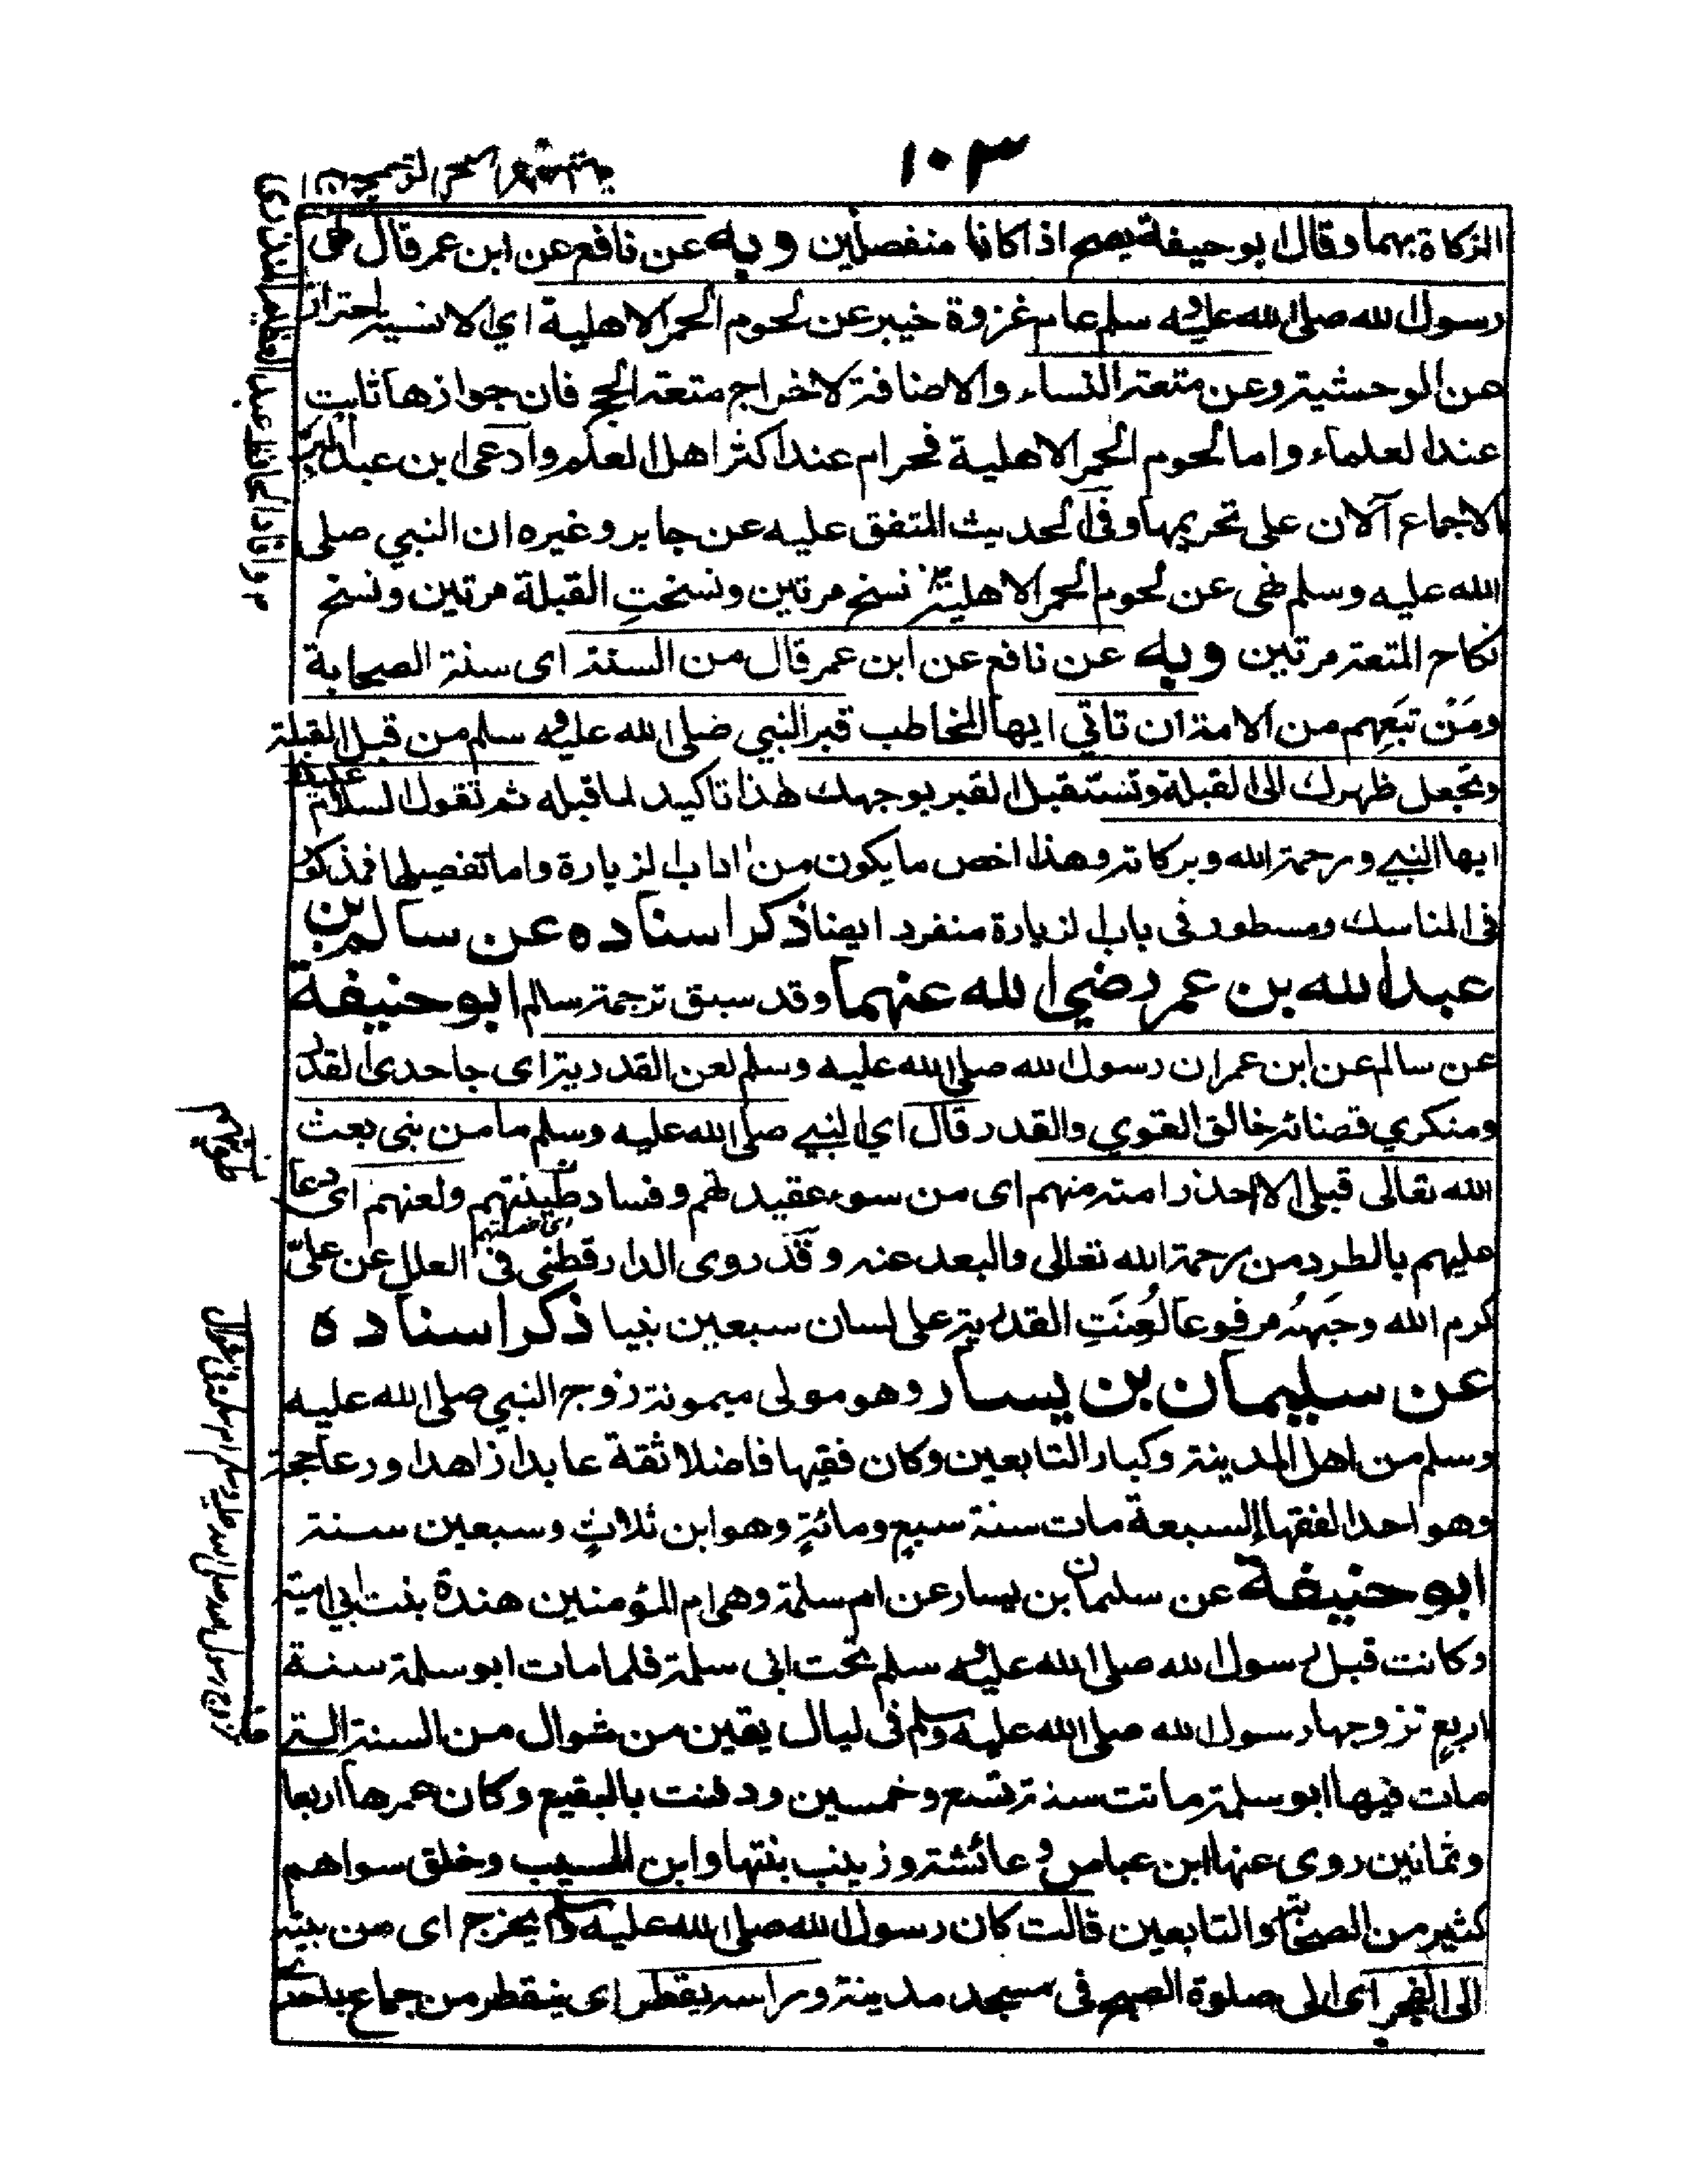 ١٠٣
الزكاة بهما وقال ابو حيفة يصح اذا كانا منفصلين وبه عن نافع عن ابن عمر قال نهى
رسول الله صلى الله عليه وسلم عام غزوة خيبر عن لحوم الحمر الاهلية اي الانسية احترازا
عن الوحشية وعن متعة النساء والاضافة لاخراج متعة الحج فان جوازها ثابت
عند العلماء واما لحوم الحمر الاهلية فحرام عند اكثر اهل العلم وادعى ابن عبد البر
الاجماع الآن على تحريمها وفي الحديث المتفق عليه عن جابر وغيره ان النبي صلى
الله عليه وسلم نهى عن لحوم الحمر الاهلية نسخ مرتين ونسخت القبلة مرتين ونسخ
نكاح المتعة مرتين وبه عن نافع عن ابن عمر قال من السنة اى سنة الصحابة
ومَن تبَعِهم من الامة ان تاتي ايها المخاطب قبر النبي صلى الله عليه وسلم من قبل القبلة
وتجعل ظهرك الى القبلة وتستقبل القبر بوجهك هذا تاكيد لما قبله ثم تقول السلام عليك
ايها النبي ورحمة الله وبركاته وهذا اخص ما يكون من اداب الزيارة واما تفصيلها فمذكور
فى المناسك ومسطور فى باب الزيارة منفرد ايضا ذكر اسناده عن سالم بن
عبد الله بن عمر رضي الله عنهما وقد سبق ترجمة سالم ابو حنيفة
عن سالم عن ابن عمر ان رسول الله صلى الله عليه وسلم لعن القدرية اى جاحدى القدر
ومنكري قضائه خالق القوي والقدر قال اي النبي صلى الله عليه وسلم ما من نبى بعث
الله تعالى قبلى الا حذر امته منهم اى من سوء عقيدتهم وفساد طينتهم ولعنهم اى دعا
عليهم بالطرد من رحمة الله تعالى والبعد عنه وقد روى الدارقطنى فى العلل عن علىّ
كرم الله وجَهَهُ مرفوعا لُعِنَتِ القدرية على لسان سبعين نبيا ذكر اسناده
عن سليمان بن يسار وهو مولى ميمونة زوج النبي صلى الله عليه
وسلم من اهل المدينة وكبار التابعين وكان فقيها فاضلا ثقة عابدا زاهدا ورعا حجة
وهو احد الفقهاء السبعة مات سنة سبعٍ ومائةٍ وهو ابن ثلاثٍ وسبعين سنة
ابو حنيفة عن سليمان بن يسار عن ام سلمة وهى ام المؤمنين هندة بنت ابي امية
وكانت قبل رسول الله صلى الله عليه وسلم تحت ابى سلمة فلما مات ابو سلمة سنة
اربعٍ تزوجها رسول الله صلى الله عليه وسلم فى ليال بقين من شوال من السنة التى
مات فيها ابو سلمة ماتت سنة تسع وخمسين ودفنت بالبقيع وكان عمرها اربعا
وثمانين روى عنها ابن عباس وعائشة وزينب بنتها وابن المسيب وخلق سواهم
كثير من الصحابة والتابعين قالت كان رسول الله صلى الله عليه وسلم يخرج اى من بيته
الى الفجر اى الى صلوة الصبح فى مسجد مدينة وراسه يقطر اى ينقطر من جماع